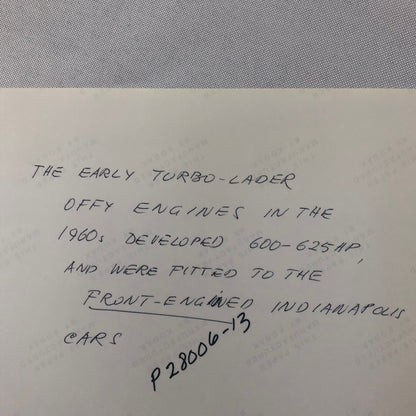 THE EARLY TURBO-LADER
OFFY ENGINES IN THE
1960s DEVELOPED 600-625HP,
AND WERE FITTED TO THE
FRONT-ENGINED INDIANAPOLIS
CARS
P28006-13